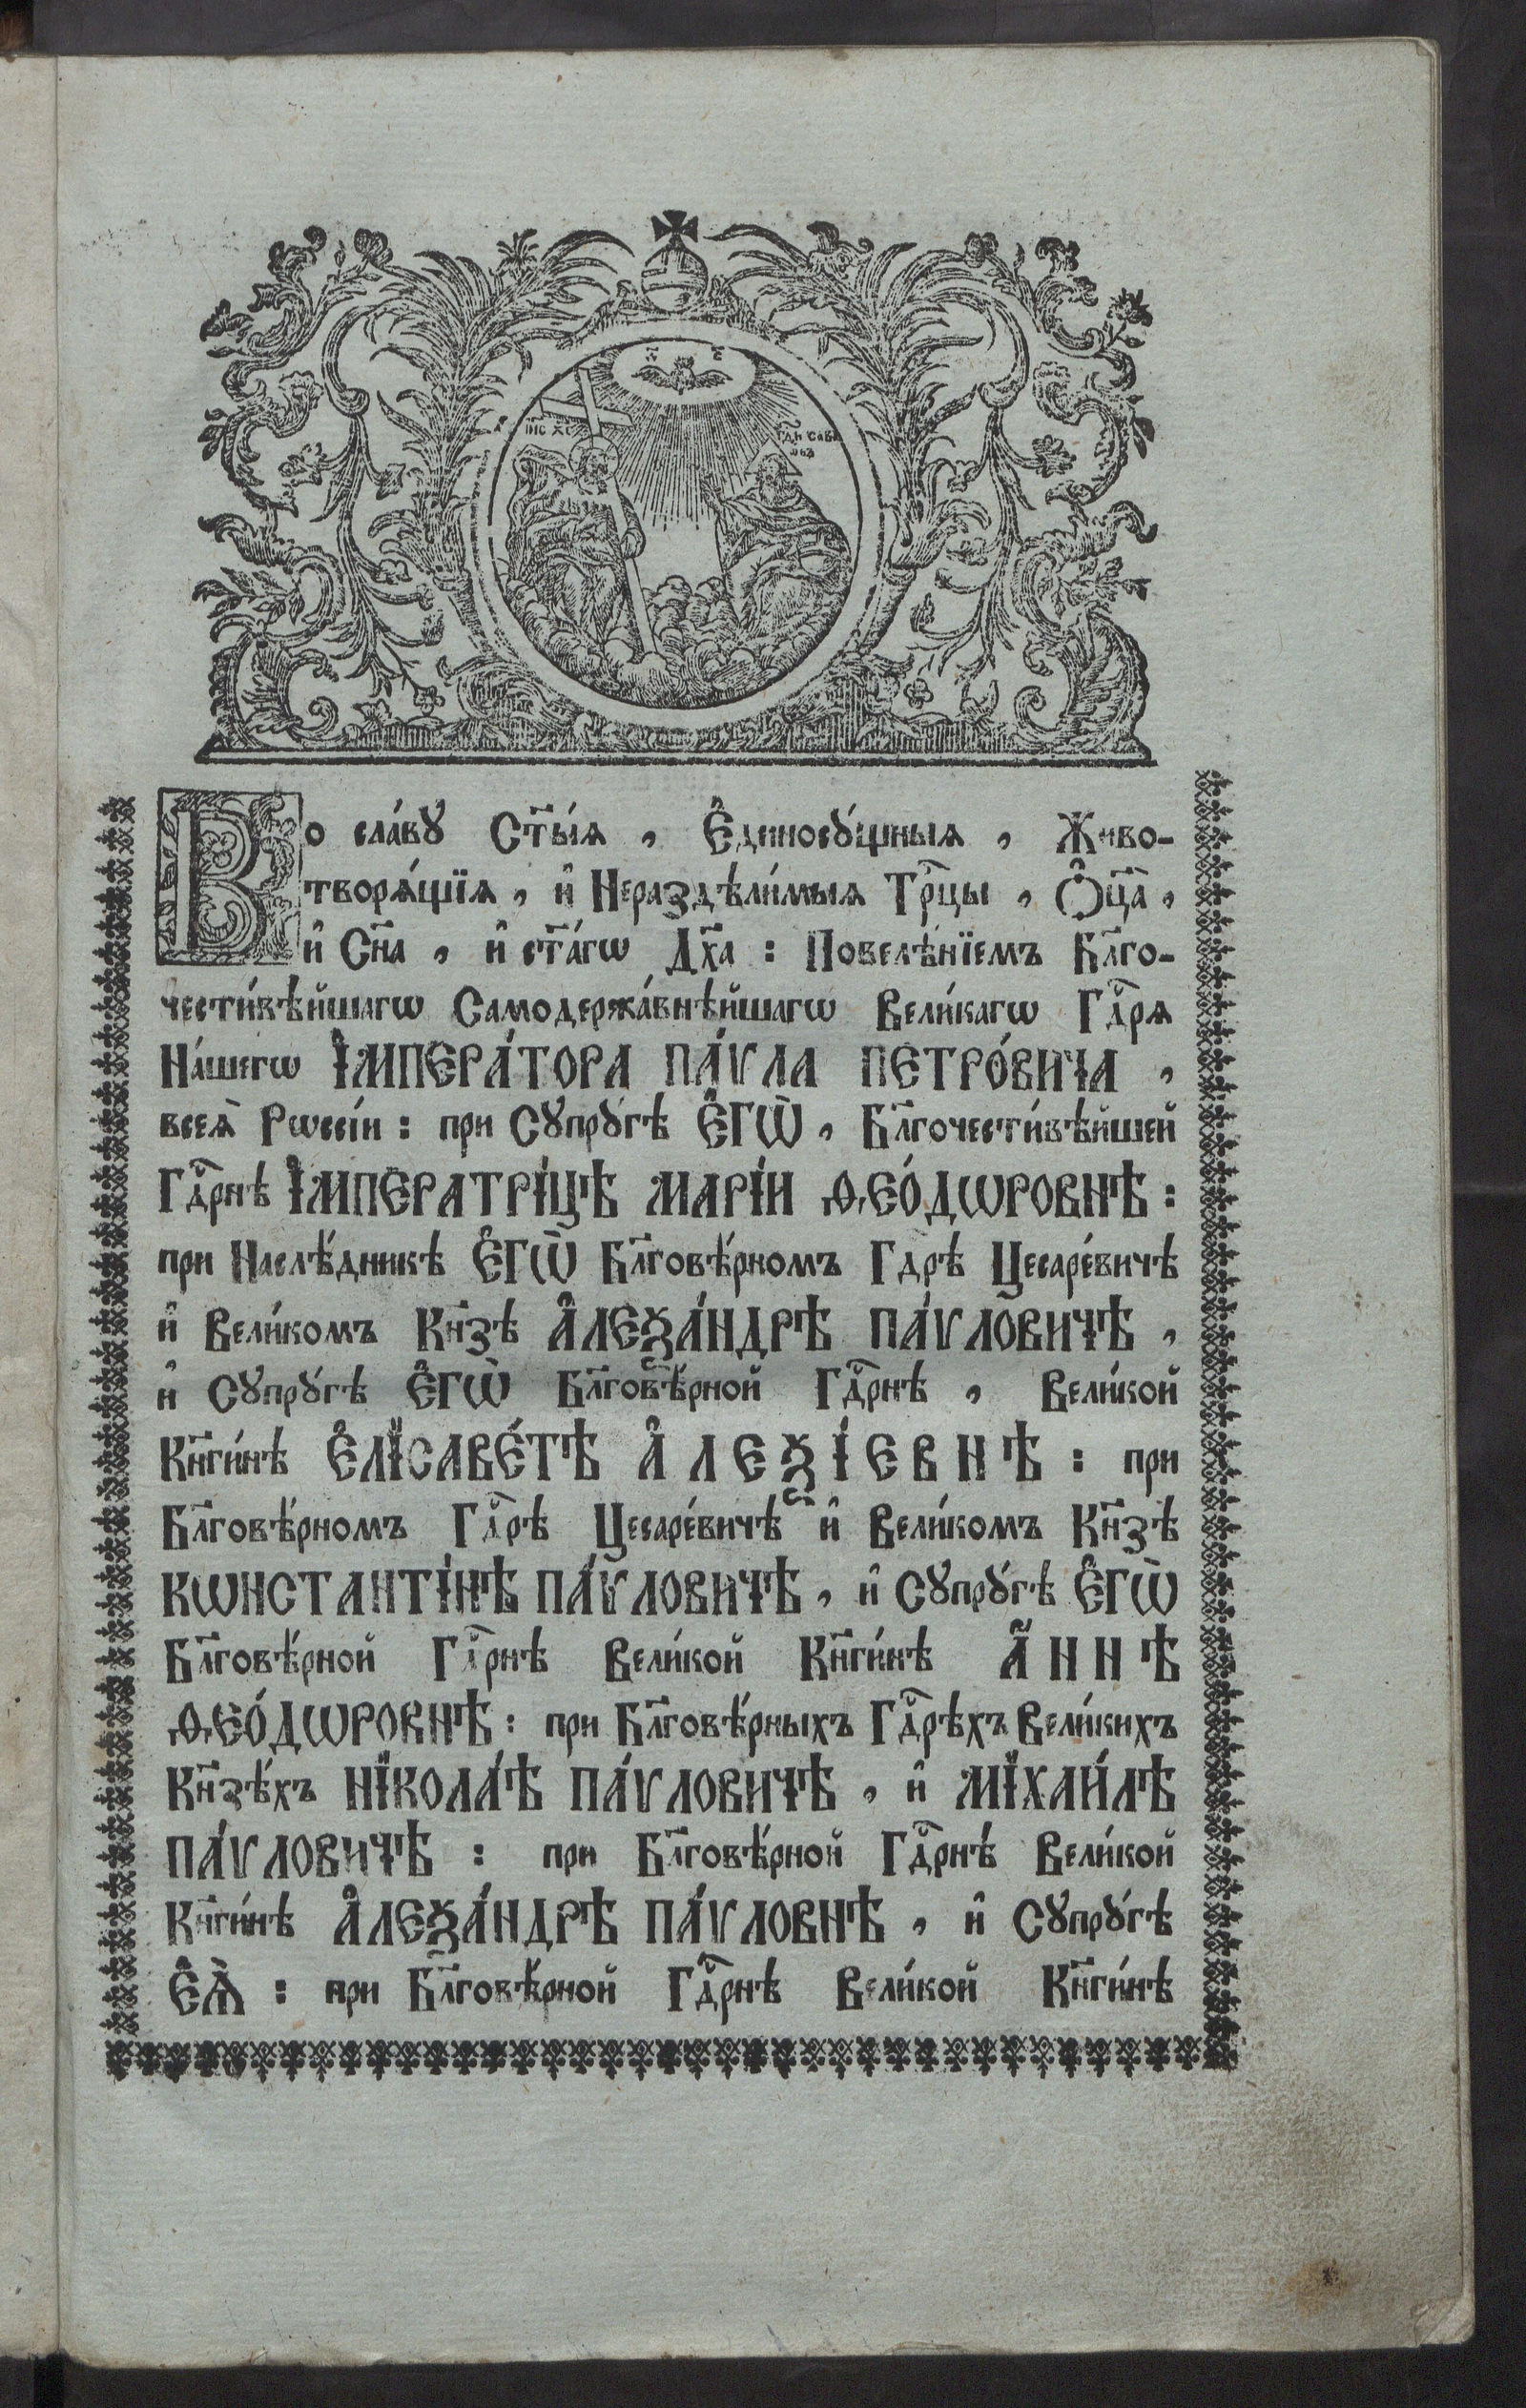 І҆И҃С Х҃С
Во сла́вꙋ Ст҃ы́ѧ , Е҆диносꙋ́щныѧ , Живо-
творѧ́щїѧ , и҆ Нераздѣли́мыѧ Трⷪ҇цы , Ѻ҆ц҃а̀ ,
и҆ Сн҃а , и҆ ст҃а́гѡ Дх҃а : Повелѣ́нїемъ Бл҃го-
чести́вѣйшагѡ Самодержа́внѣйшагѡ Вели́кагѡ Гдⷭ҇рѧ
На́шегѡ І҆МПЕРА́ТОРА ПА́ѴЛА ПЕТРО́ВИЧА ,
всеѧ̀ Рѡссі́и : при Сꙋпрꙋ́гѣ Е҆ГѠ̀ , Бл҃гочести́вѣйшей
Гдⷭ҇рнѣ І҆МПЕРАТРІ́ЦѢ МАРІ́И Ѳ̾ЕО́ДѠРОВНѢ :
при Наслѣ́дникѣ Е҆ГѠ̀ Бл҃говѣ́рномъ Гдрѣ Цесаре́вичѣ
и҆ Вели́комъ Кн҃зѣ А҆ЛЕѮА́НДРѢ ПА́ѴЛОВИЧѢ ,
и҆ Сꙋпрꙋ́гѣ Е҆ГѠ̀ Бл҃говѣ́рной Гдⷭ҇рнѣ , Вели́кой
Кн҃ги́нѣ Е҆ЛІСАВЕ́ТѢ А҆ЛЕѮІ́ЕВНѢ : при
Бл҃говѣ́рномъ Гдⷭ҇рѣ Цесаре́вичѣ и҆ Вели́комъ Кн҃зѣ
КѠНСТАНТІ́НѢ ПА́ѴЛОВИЧѢ , и҆ Сꙋпрꙋ́гѣ Е҆ГѠ̀
Бл҃говѣ́рной Гдⷭ҇рнѣ Вели́кой Кн҃ги́нѣ А҆́ННѢ
ѲЕО́ДѠРОВНѢ : при Бл҃говѣ́рныхъ Гдⷭ҇рѣхъ Вели́кихъ
Кн҃зѣ́хъ НІКОЛА́Ѣ ПА́ѴЛОВИЧѢ , и҆ МІХАИ́ЛѢ
ПА́ѴЛОВИЧѢ : при Бл҃говѣ́рной Гдⷭ҇рнѣ́ Вели́кой
Кн҃ги́нѣ А҆ЛЕѮА́НДРѢ ПА́ѴЛОВНѢ , и҆ Сꙋпрꙋ́гѣ
Е҆Ѧ̀ : при Бл҃говѣ́рной Гдⷭ҇рнѣ Вели́кой Кн҃ги́нѣ